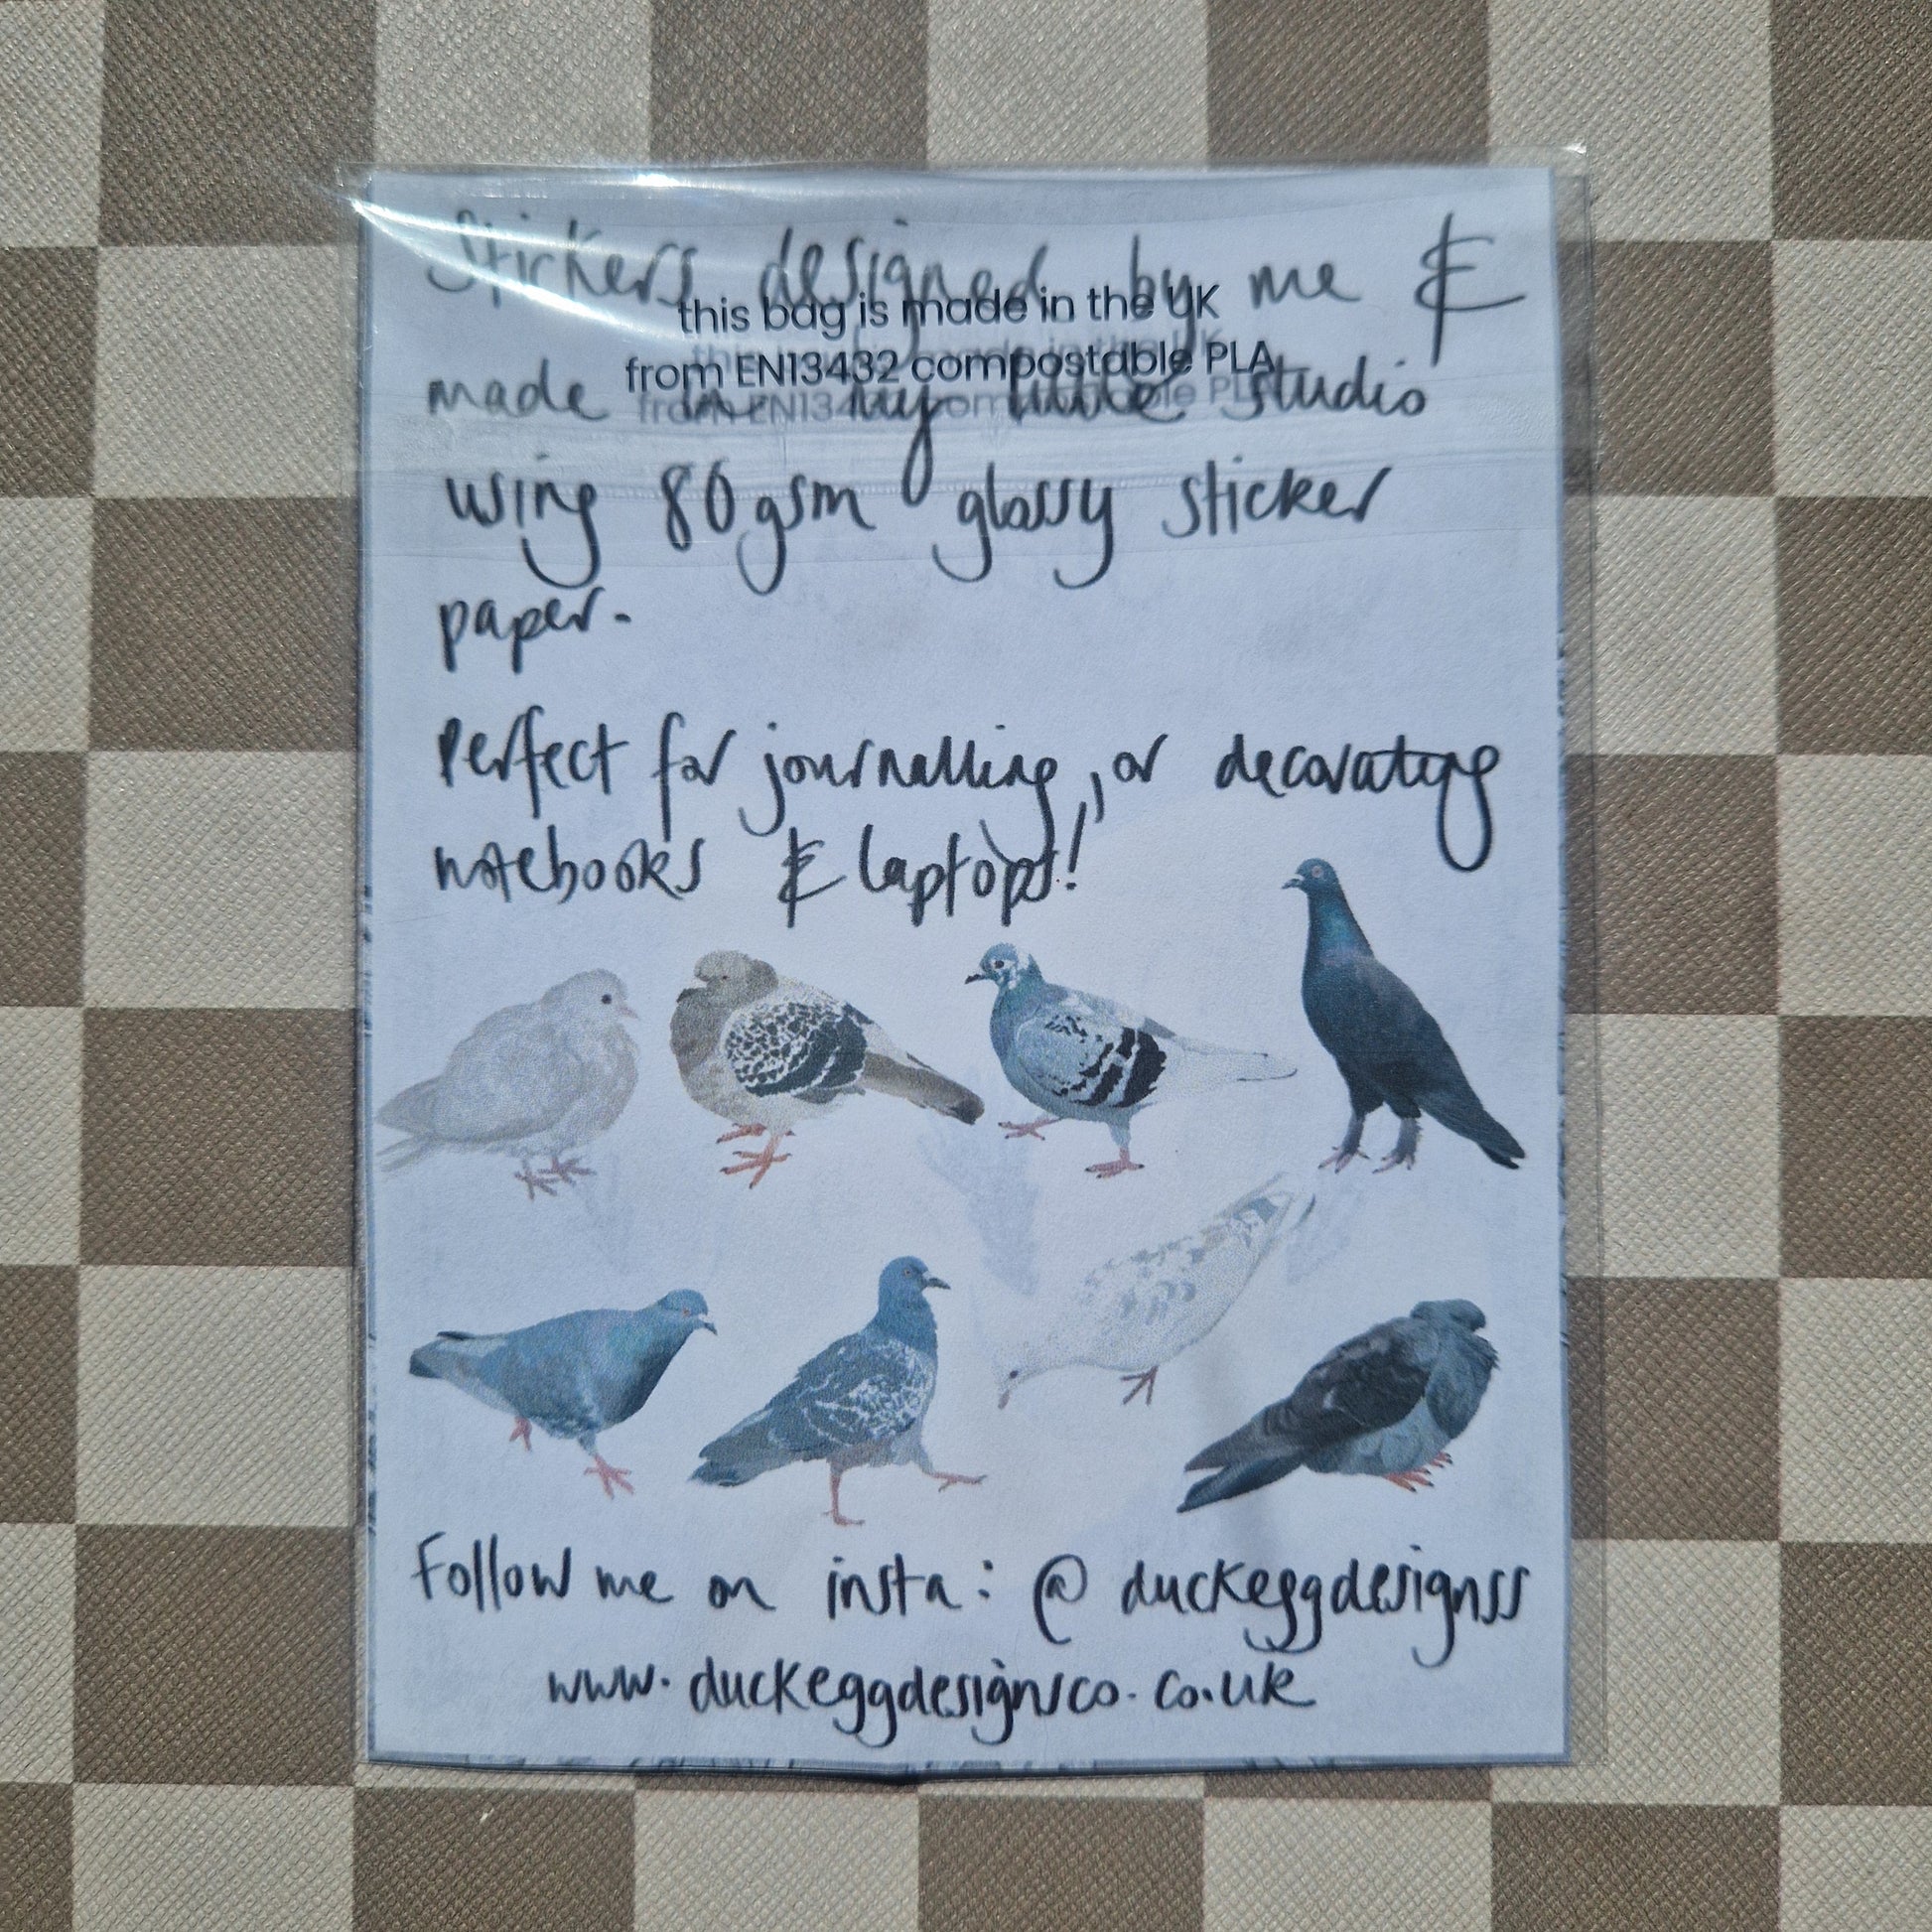 Stickers designed by me &
this bag is made in the UK
from EN13432 compostable PLA
made in my little studio
using 80gsm glossy sticker
paper.
Perfect for journalling, or decorating
notebooks & laptops!
Follow me on insta: @duckeggdesignss
www.duckeggdesignsco.co.uk